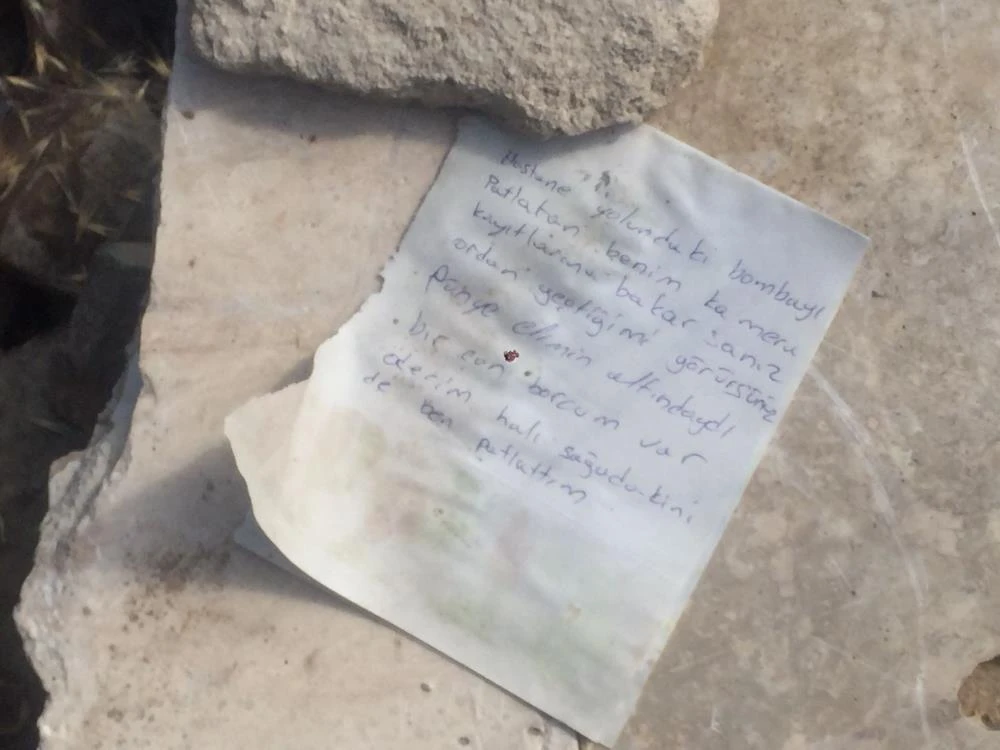 Hastane yolundaki bombayı
Patlatan benim ka mera
kayıtlarına bakar sanız
ordan geçtiğimi görürsünüz
Panye elimin altındaydı
bir can borcum var
öderim halı sağada-kini
de ben patlattım